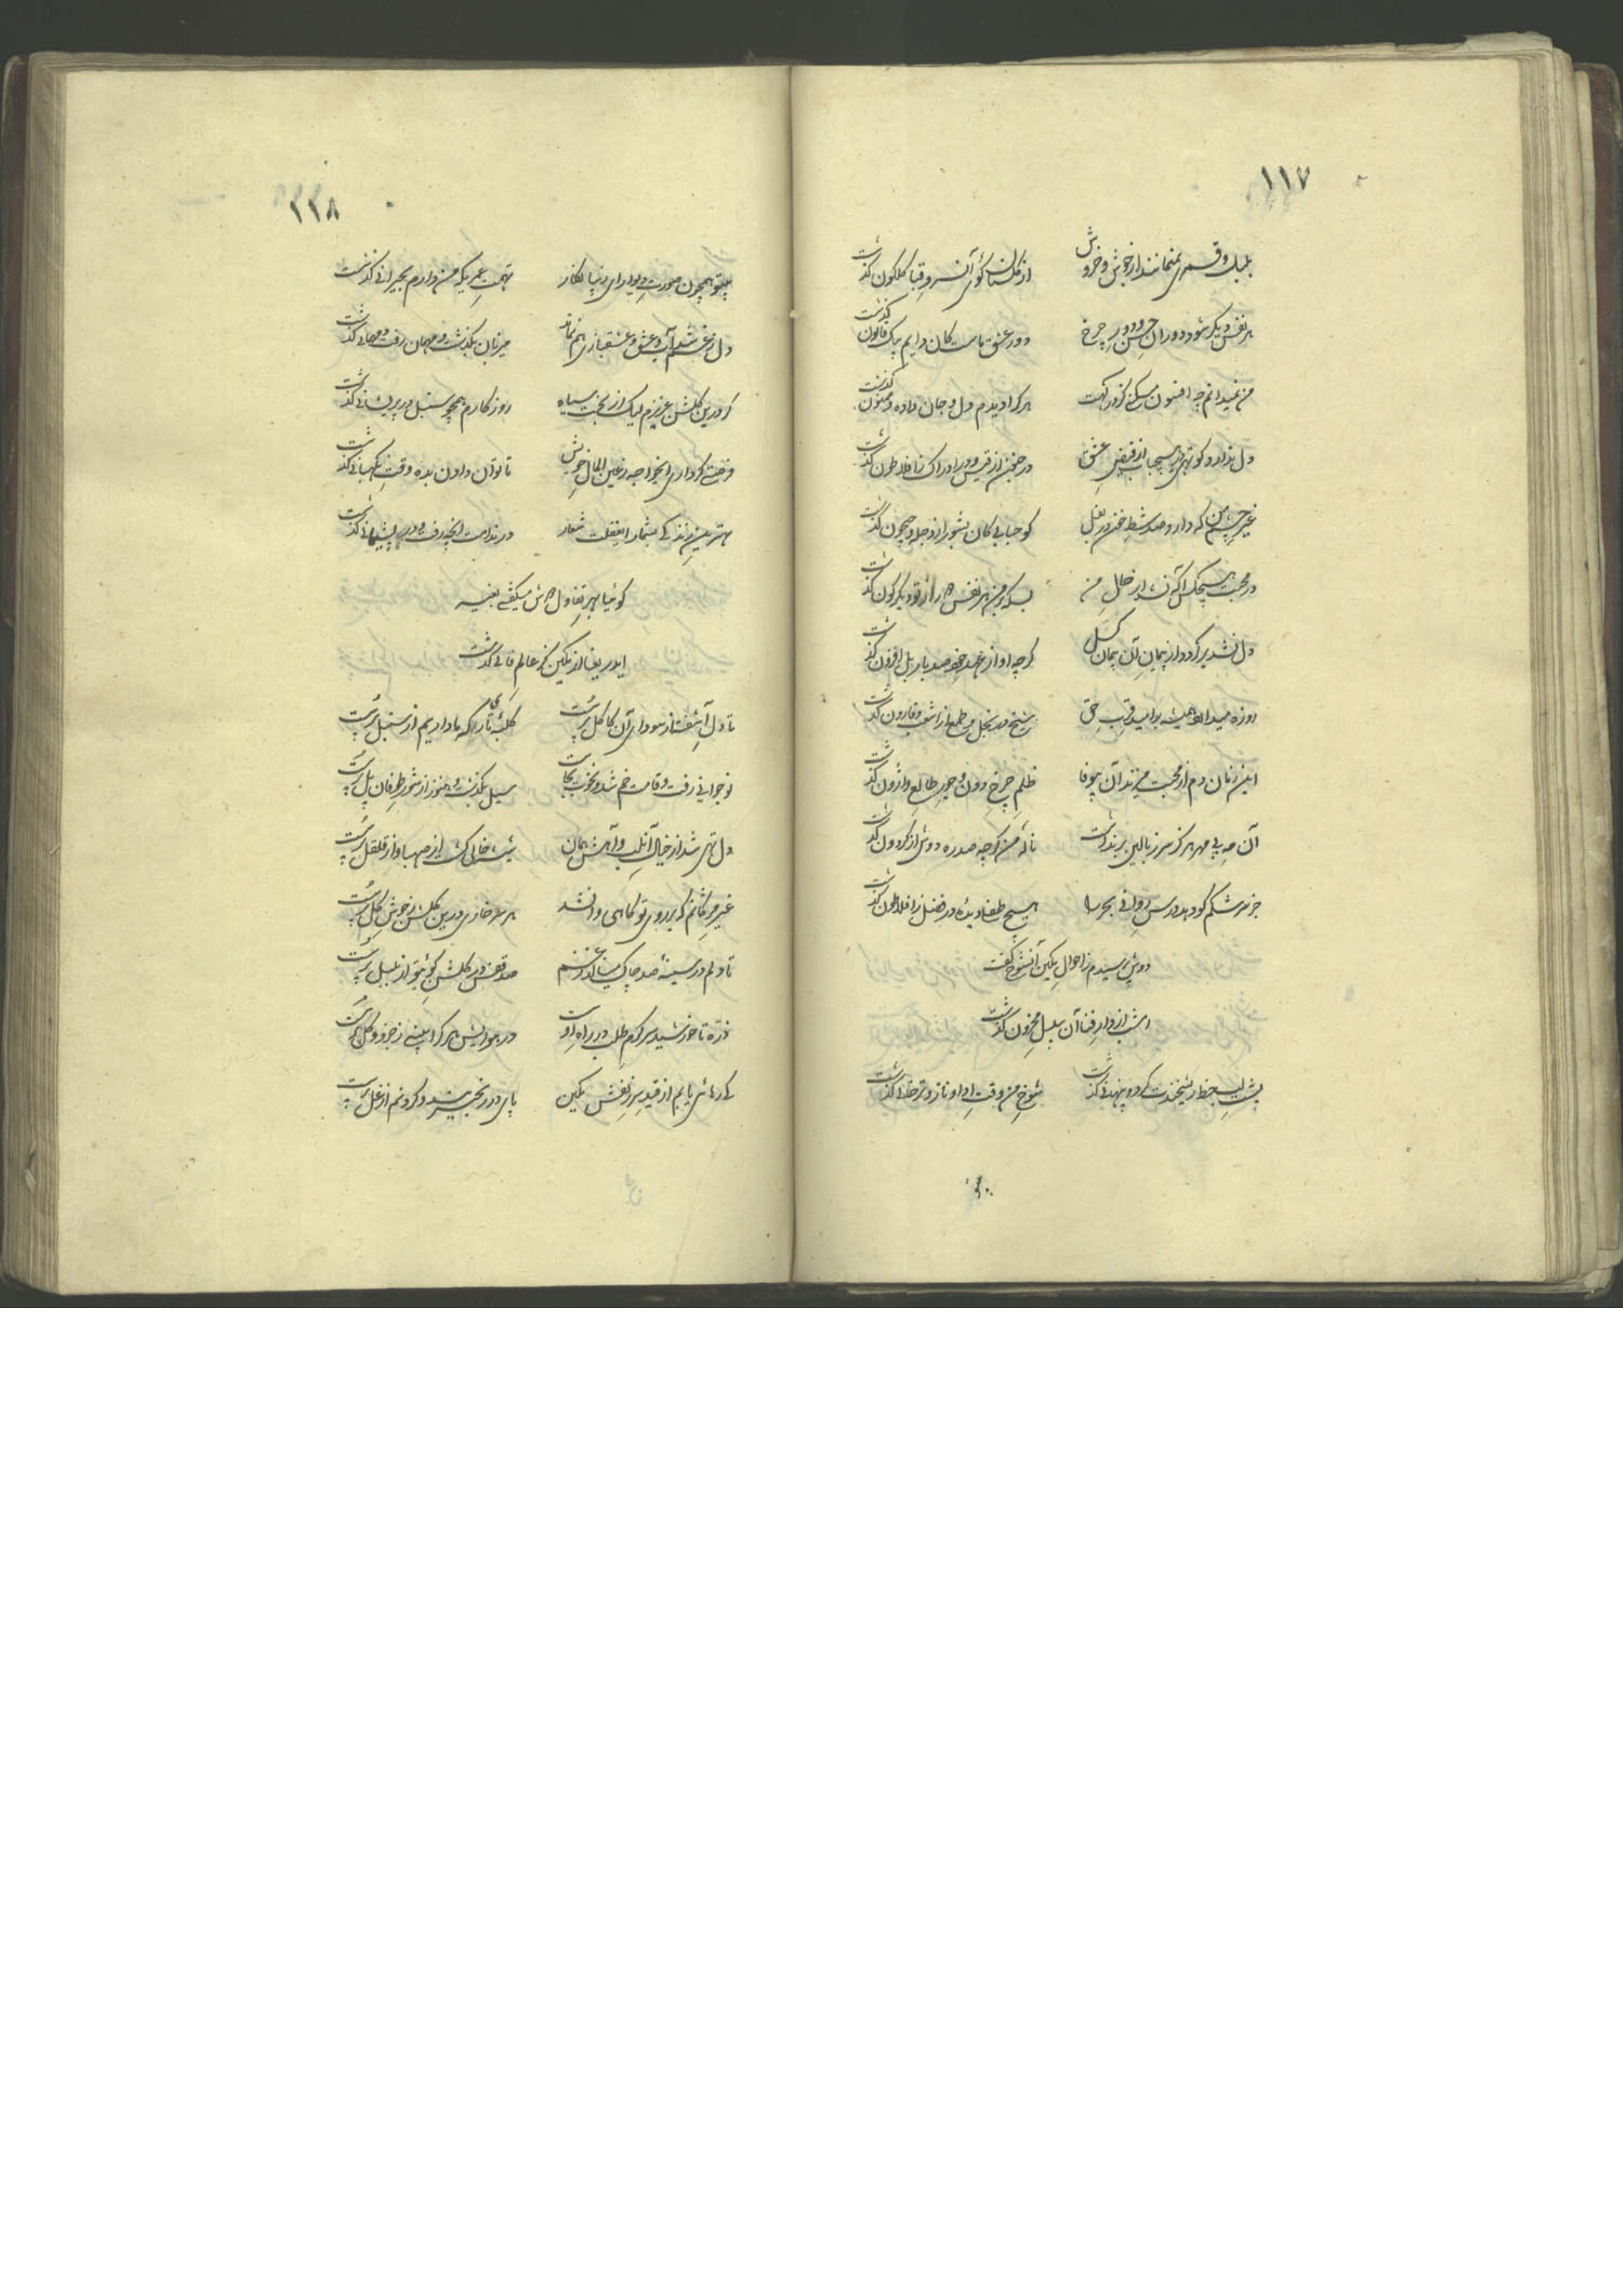 ١١٧
بلبل و قمری نمیمانند از جوش و خروش از گلستان کوی آن سرو قبا گلگون گذشت
هر نفس دیگر شود دوران حسن و دور چرخ دور عشق ماست کان دایم بیک قانون گذشت
من نمیدانم چه افسون میکنی کز درگهت هر کرا دیدم دل و جان داده و ممنون گذشت
دل ندارد کوتهی در هیچ باب از فیض عشق در جنون از قیس و در ادراک ز افلاطون گذشت
غیر چشم من که دارد صد شط خون در بغل کو حبابی کان بشور از دجله و جیحون گذشت
در محبت هیچکس آگه نشد از حال من بسکه بر من هر نفس از تو دیگرگون گذشت
دل نشد برگردد از پیمان آن پیمان گسل گرچه او از عهد خود صد بار بل افزون گذشت
روزه میدارد همیشه بر امید قرب حق شیخ در بخل و طمع از اشعب و قارون گذشت
این زمان دم از محبت میزند آن بیوفا ظلم چرخ دون و جور طالع وارون گذشت
آن مه بی مهر هرگز سر ز بالین برنداشت ناله من گرچه صد ره دوش از گردون گذشت
جز سرشکم کو دهد درس روانی بحر را هیچ طفلی دیده در فضل ز افلاطون گذشت
دوش پرسیدم ز احوال مکین آنشوخ گفت
امشب از دار فنا آن بیدل محزون گذشت
پشت لب خط ریختندت گرد و پنهانی گذشت شوخ من وقت ادا و ناز و ترخانی گذشت
١١٨
بیتو همچون صورت دیوار ای زیبا نگار تهمت عمریکه من دارم بحیرانی گذشت
دل ز غم شد آب و عشق و عشقبازی هم نماند میزبان بگذشت و مهمان رفت و مهمانی گذشت
گر درین گلشن عزیزم لیک از بخت سیاه روزگارم همچو سنبل در پریشانی گذشت
فرصتی گر داری ایخواجه ز عین المال خویش تا توان دادن بده وقت نگهبانی گذشت
بهترین زندگی مشمار ایغفلت شعار در ندامت آنچه رفت و در پشیمانی گذشت
گوئیا بهر تفاول دوش میگفتی بغیر
ایدریغا از مکین کز عالم فانی گذشت
تا دل آشفته از سودای آن کاکل پرست کلبه تاریکه ما داریم از سنبل پرست
نوجوانی رفت و قامت خم شد و نخوت بجاست سیل بگذشت و هنوز از شور طوفان پل پرست
دل تهی شد از خیال آنلب و آهش همان شیشه خالی گشت از صهبا و از قلقل پرست
غیر مژگانم که بر روی تو گاهی وا نشد هر سر خاری درین گلشن ز خوش گل پرست
تا دلم در سینه صد چاک مینالد ز غم صد قفس در گلشن کوی تو از بلبل پرست
ذره تا خورشید سرگرم طلب در راه اوست در هوایش هر کرا بینی ز جزو و کل پرست
کی رهائی یابم از قید سر زلفش مکین پای در زنجیر شد و گردنم از غل پرست